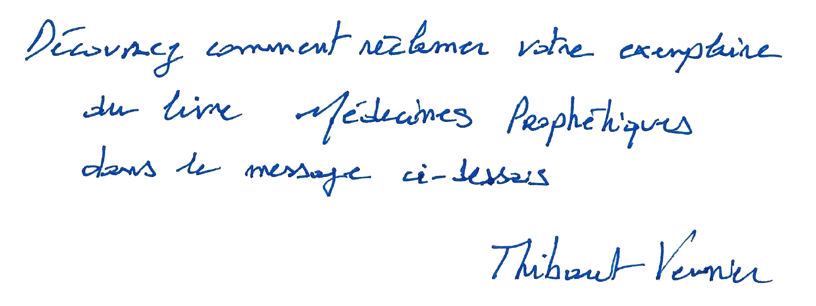 Découvrez comment réclamer votre exemplaire
du livre Médecines Prophétiques
dans le message ci-dessous
Thibaut Vernier